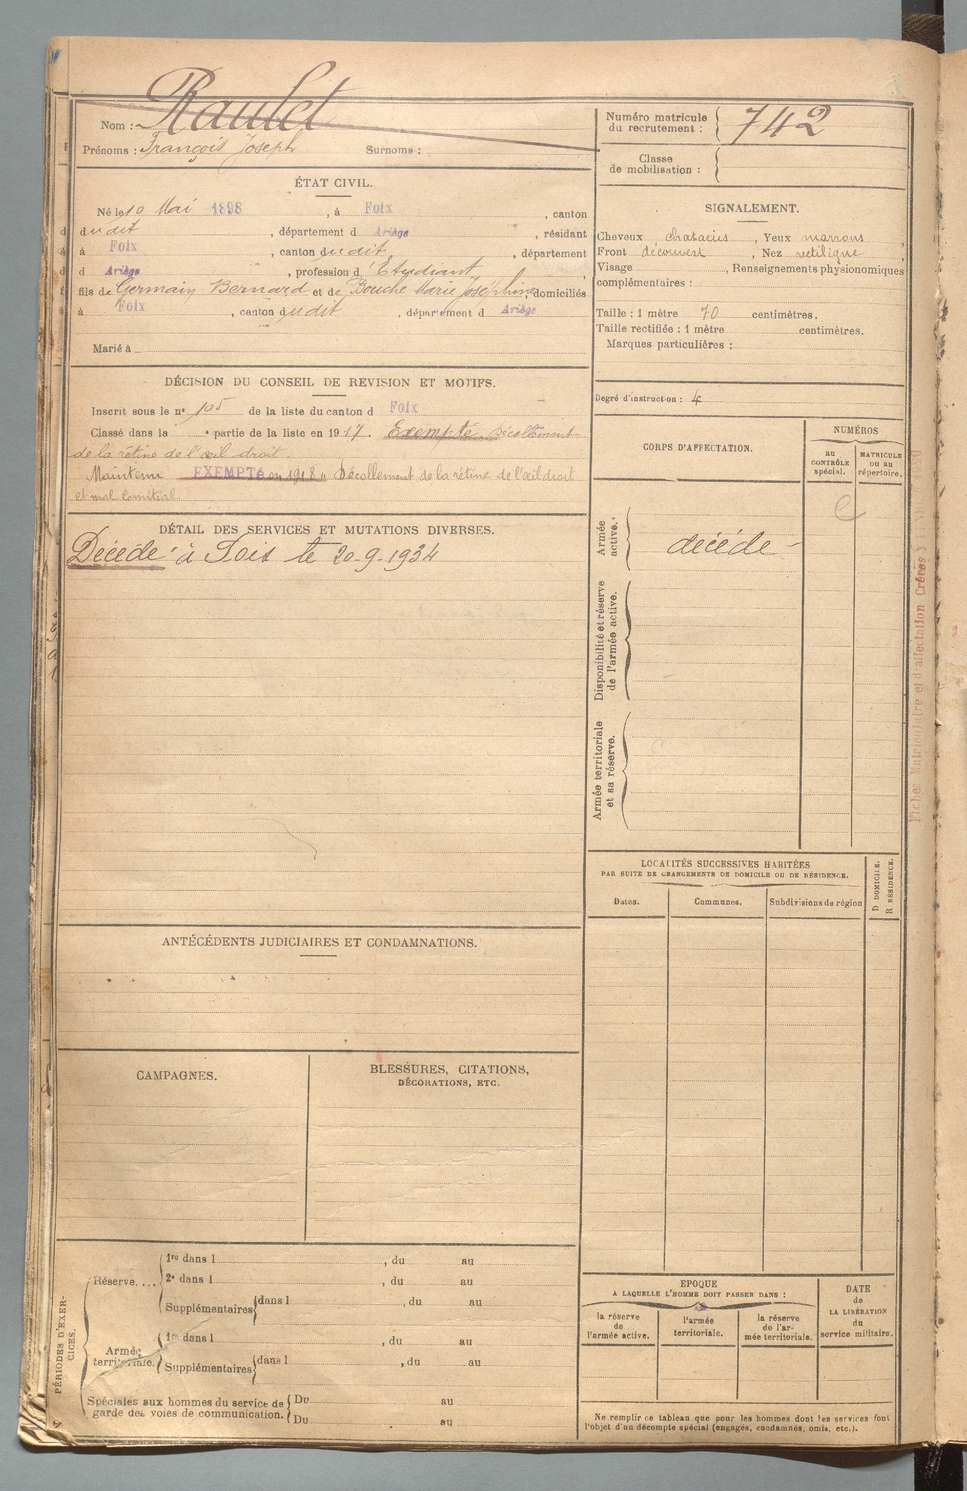 Nom : Raulet
Prénoms : François Joseph Surnoms :
Numéro matricule du recrutement : 742
Classe de mobilisation :
ÉTAT CIVIL.
Né le 10 Mai 1898, à Foix, canton
dudit, département d Ariège, résidant
à Foix, canton dudit, département
d Ariège, profession d'Etudiant
fils de Germain Bernard et de Bouche Marie Josephine, domiciliés
à Foix, canton dudit, département d Ariège
Marié à
SIGNALEMENT.
Cheveux chatains, Yeux marrons,
Front découvert, Nez rectiligne,
Visage, Renseignements physionomiques
complémentaires :
Taille : 1 mètre 70 centimètres.
Taille rectifiée : 1 mètre centimètres.
Marques particulières :
Degré d'instruction : 4
DÉCISION DU CONSEIL DE REVISION ET MOTIFS.
Inscrit sous le n° 105 de la liste du canton d Foix
Classé dans la e partie de la liste en 1917. Exempté Décollement
de la rétine de l'œil droit.
Maintenu EXEMPTÉ en 1918 " Décollement de la rétine de l'œil droit
et mal comitial
DÉTAIL DES SERVICES ET MUTATIONS DIVERSES.
Décédé à le 20-9-1934
CORPS D'AFFECTATION.
NUMÉROS
au CONTRÔLE spécial.
MATRICULE ou au répertoire.
Armée active.
décédé -
Disponibilité et réserve de l'armée active.
Armée territoriale et sa réserve.
LOCALITÉS SUCCESSIVES HABITÉES
PAR SUITE DE CHANGEMENTS DE DOMICILE OU DE RÉSIDENCE.
Dates.
Communes.
Subdivisions de région
D DOMICILE.
R RÉSIDENCE.
ANTÉCÉDENTS JUDICIAIRES ET CONDAMNATIONS.
CAMPAGNES.
BLESSURES, CITATIONS,
DÉCORATIONS, ETC.
PÉRIODES D'EXERCICES.
Réserve....
1re dans l, du au
2e dans l, du au
Supplémentaires dans l, du au
Armée territoriale.
1re dans l, du au
Supplémentaires dans l, du au
Spéciales aux hommes du service de
garde des voies de communication.
Du au
Du au
EPOQUE
A LAQUELLE L'HOMME DOIT PASSER DANS :
la réserve de l'armée active.
l'armée territoriale.
la réserve de l'armée territoriale.
DATE de LA LIBÉRATION du service militaire.
Ne remplir ce tableau que pour les hommes dont les services font
l'objet d'un décompte spécial (engagés, condamnés, omis, etc.).
Fiches Matriculaire et d'affectation Créées